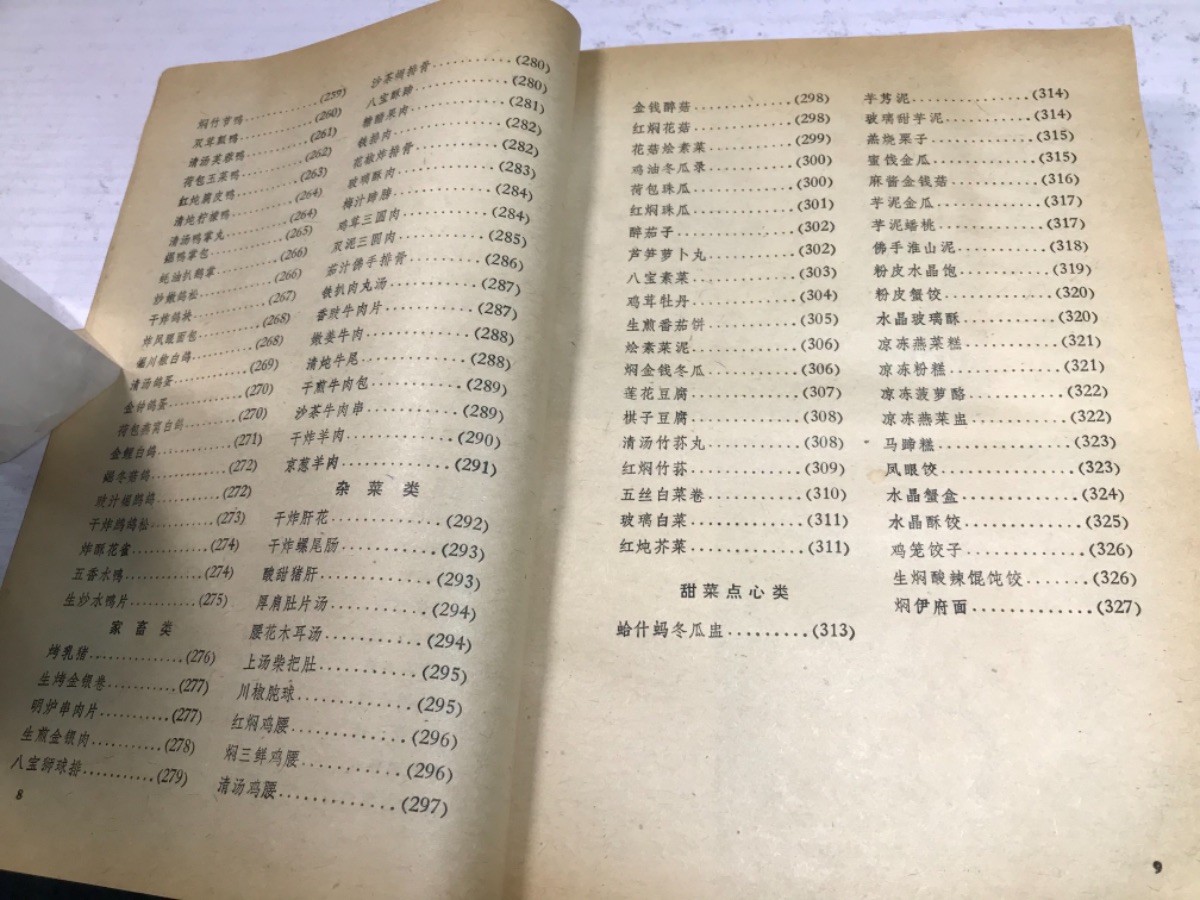 焖竹节鸭……………(259)
双茸瓢鸭……………(260)
清汤芙蓉鸭…………(261)
荷包玉菜鸭…………(262)
红炖腐皮鸭…………(263)
清炖柠檬鸭…………(264)
清汤鸭掌丸…………(264)
焗鸭掌包……………(265)
蚝油扒鹅掌…………(266)
炒嫩鸽松……………(266)
干炸鸽块……………(267)
炸凤眼面包…………(268)
焗川椒白鸽…………(268)
清汤鸽蛋……………(269)
金钟鸽蛋……………(270)
荷包燕窝白鸽………(270)
金鲤白鸽……………(271)
焗冬菇鸽……………(272)
豉汁焗鹧鸪…………(272)
干炸鹧鸪松…………(273)
炸酥花雀……………(274)
五香水鸭……………(274)
生炒水鸭片…………(275)
家畜类
烤乳猪………………(276)
生烤金银卷…………(277)
明炉串肉片…………(277)
生煎金银肉…………(278)
八宝狮球排…………(279)
8
沙茶焗排骨…………(280)
八宝酥蹄……………(280)
糖醋果肉……………(281)
铁捞肉………………(282)
花椒炸排骨…………(282)
玻璃酥肉……………(283)
梅汁蹄膀……………(284)
鸡茸三圆肉…………(284)
双泥三圆肉…………(285)
茄汁佛手排骨………(286)
铁扒肉丸汤…………(287)
香豉牛肉片…………(287)
嫩姜牛肉……………(288)
清炖牛尾……………(288)
干煎牛肉包…………(289)
沙茶牛肉串…………(289)
干炸羊肉……………(290)
京葱羊肉……………(291)
杂菜类
干炸肝花……………(292)
干炸螺尾肠…………(293)
酸甜猪肝……………(293)
厚肩肚片汤…………(294)
腰花木耳汤…………(294)
上汤柴把肚…………(295)
川椒肫球……………(295)
红焖鸡腰……………(296)
焖三鲜鸡腰…………(296)
清汤鸡腰……………(297)
金钱醉菇……………(298)
红焖花菇……………(298)
花菇烩素菜…………(299)
鸡油冬瓜录…………(300)
荷包珠瓜……………(300)
红焖珠瓜……………(301)
醉茄子………………(302)
芦笋萝卜丸…………(302)
八宝素菜……………(303)
鸡茸牡丹……………(304)
生煎番茄饼…………(305)
烩素菜泥……………(306)
焖金钱冬瓜…………(306)
莲花豆腐……………(307)
棋子豆腐……………(308)
清汤竹荪丸…………(308)
红焖竹荪……………(309)
五丝白菜卷…………(310)
玻璃白菜……………(311)
红炖芥菜……………(311)
甜菜点心类
蛤什蚂冬瓜盅………(313)
芋艿泥………………(314)
玻璃甜芋泥…………(314)
羔烧栗子……………(315)
蜜饯金瓜……………(315)
麻酱金钱菇…………(316)
芋泥金瓜……………(317)
芋泥蟠桃……………(317)
佛手淮山泥…………(318)
粉皮水晶饱…………(319)
粉皮蟹饺……………(320)
水晶玻璃酥…………(320)
凉冻燕菜糕…………(321)
凉冻粉糕……………(321)
凉冻菠萝酪…………(322)
凉冻燕菜盅…………(322)
马蹄糕………………(323)
凤眼饺………………(323)
水晶蟹盒……………(324)
水晶酥饺……………(325)
鸡笼饺子……………(326)
生焖酸辣馄饨饺……(326)
焖伊府面……………(327)
9